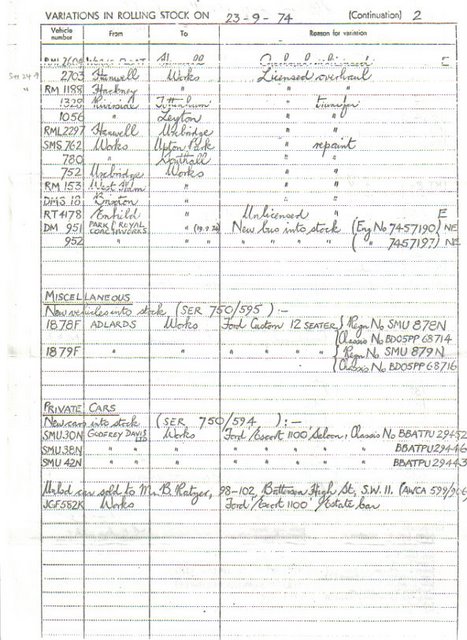 VARIATIONS IN ROLLING STOCK ON 23-9-74 (Continuation) 2
Vehicle number From To Reason for variation
RML 2604 E
2703 Hanwell Works Licensed overhaul
RM 1188 Hackney " "
1329 Riverside Tottenham " transfer
1056 " Leyton " "
RML2297 Hanwell Uxbridge " "
SMS 762 Works Upton Park " repaint
780 " Southall " "
752 Uxbridge Works " "
RM 153 West Ham " " "
DMS 18 Brixton " " "
RT4178 Enfield " Unlicensed " E
DM 951 PARK ROYAL COACHWORKS " (19.9.74) New bus into stock (Eng No 7457190) NE
952 " " " " " " " ( " 7457197) NE
MISCELLANEOUS
New vehicles into stock (SER 750/595) :-
1878F ADLARDS Works Ford Custom 12 SEATER { Regn No SMU 878N
Chassis No BD05PP 68714
1879F " " " " " " { Regn No SMU 879N
Chassis No BD05PP 68716
PRIVATE CARS
New cars into stock (SER 750/594) :-
SMU 30N GODFREY DAVIS LTD Works Ford 'Escort 1100' Saloon, Chassis No BBATPU 29452
SMU 38N " " " " " " " BBATPU 29446
SMU 42N " " " " " " " BBATPU 29443
Unlsd car sold to Mr. B. Ratzer, 98-102, Battersea High St, S.W. 11. (AWCA 599/906)
JGF 552K Works Ford 'Escort 1100' Estate car